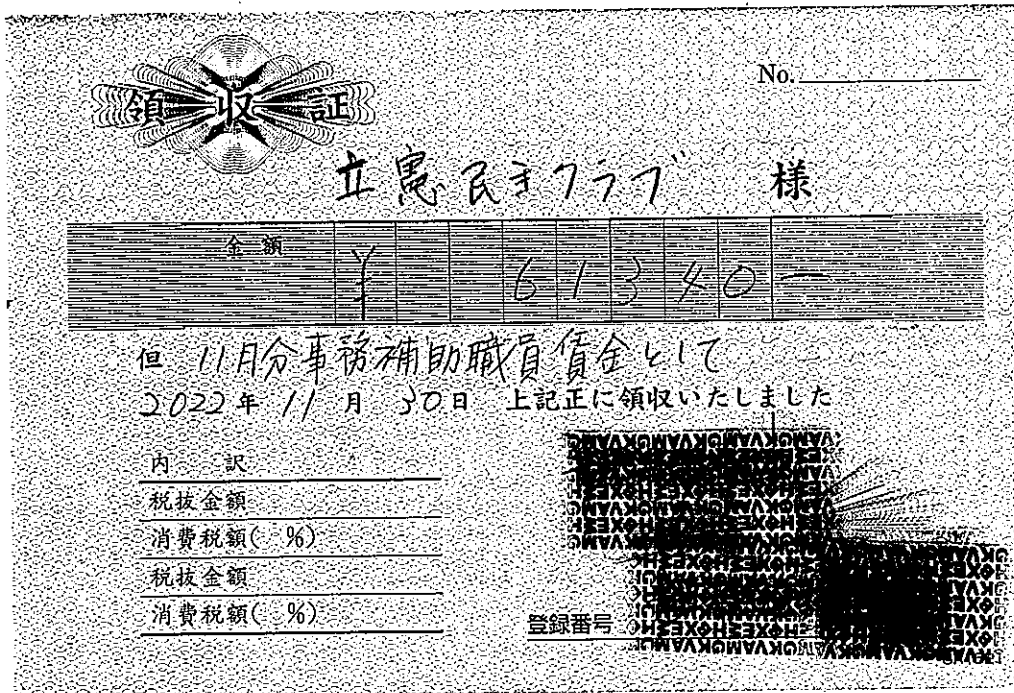 領収証
No.
立憲民主クラブ 様
金額 ¥61340-
但 11月分事務補助職員賃金として
2022年 11月 30日 上記正に領収いたしました
内 訳
税抜金額
消費税額( %)
税抜金額
消費税額( %)
登録番号